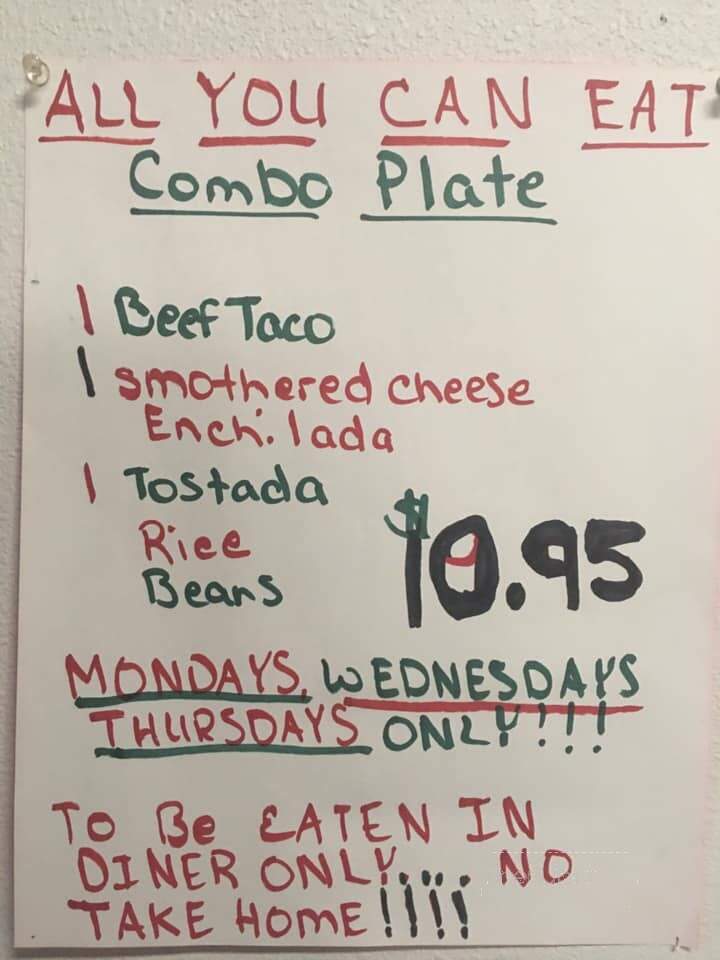 ALL YOU CAN EAT
Combo Plate
1 Beef Taco
1 smothered cheese
Enchilada
1 Tostada
Rice
Beans
$10.95
MONDAYS, WEDNESDAYS
THURSDAYS ONLY!!!
To Be EATEN IN
DINER ONLY.... NO
TAKE HOME!!!!